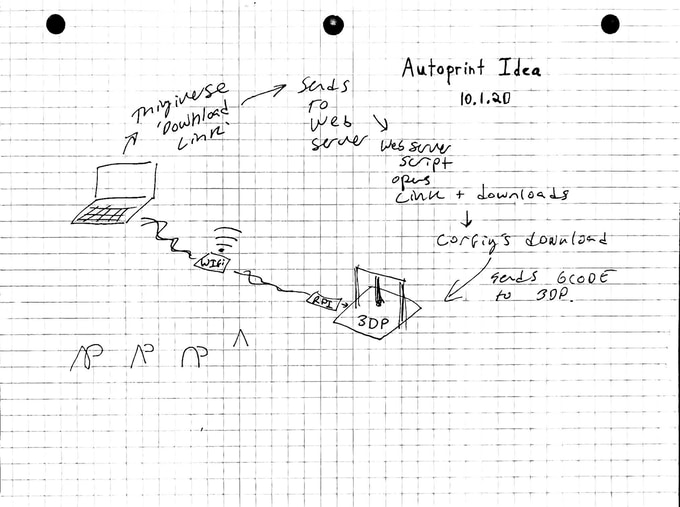 Autoprint Idea
10.1.20
Thingiverse
'Download
Link'
Sends
to
Web
server
Web server
script
opens
Link + downloads
Config's download
sends GCODE
to 3DP.
WIFI
RPI
3DP